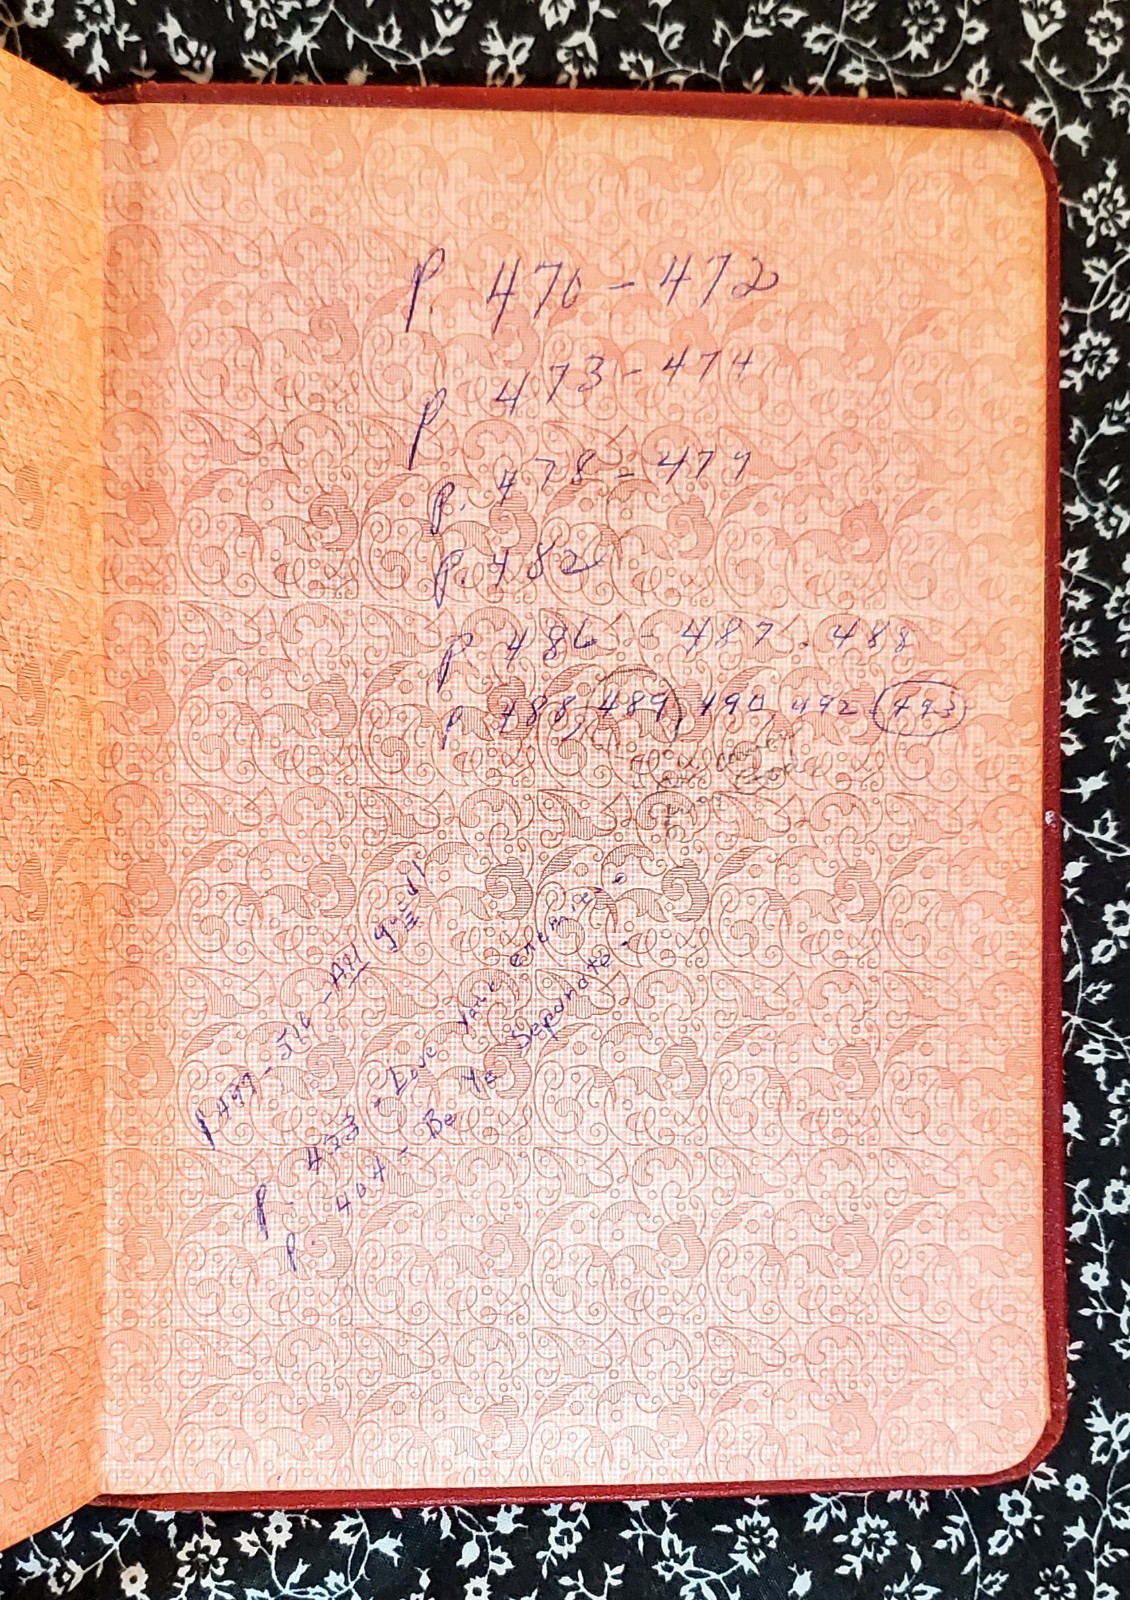 P. 470 - 472
P 473 - 474
P. 478 - 479
P. 482
P 486 - 487. 488
P 488, 489, 490 492 493
P 497 - 516 - All good!
P. 433 - Love your enemies -
P. 404 - Be Ye Separate -